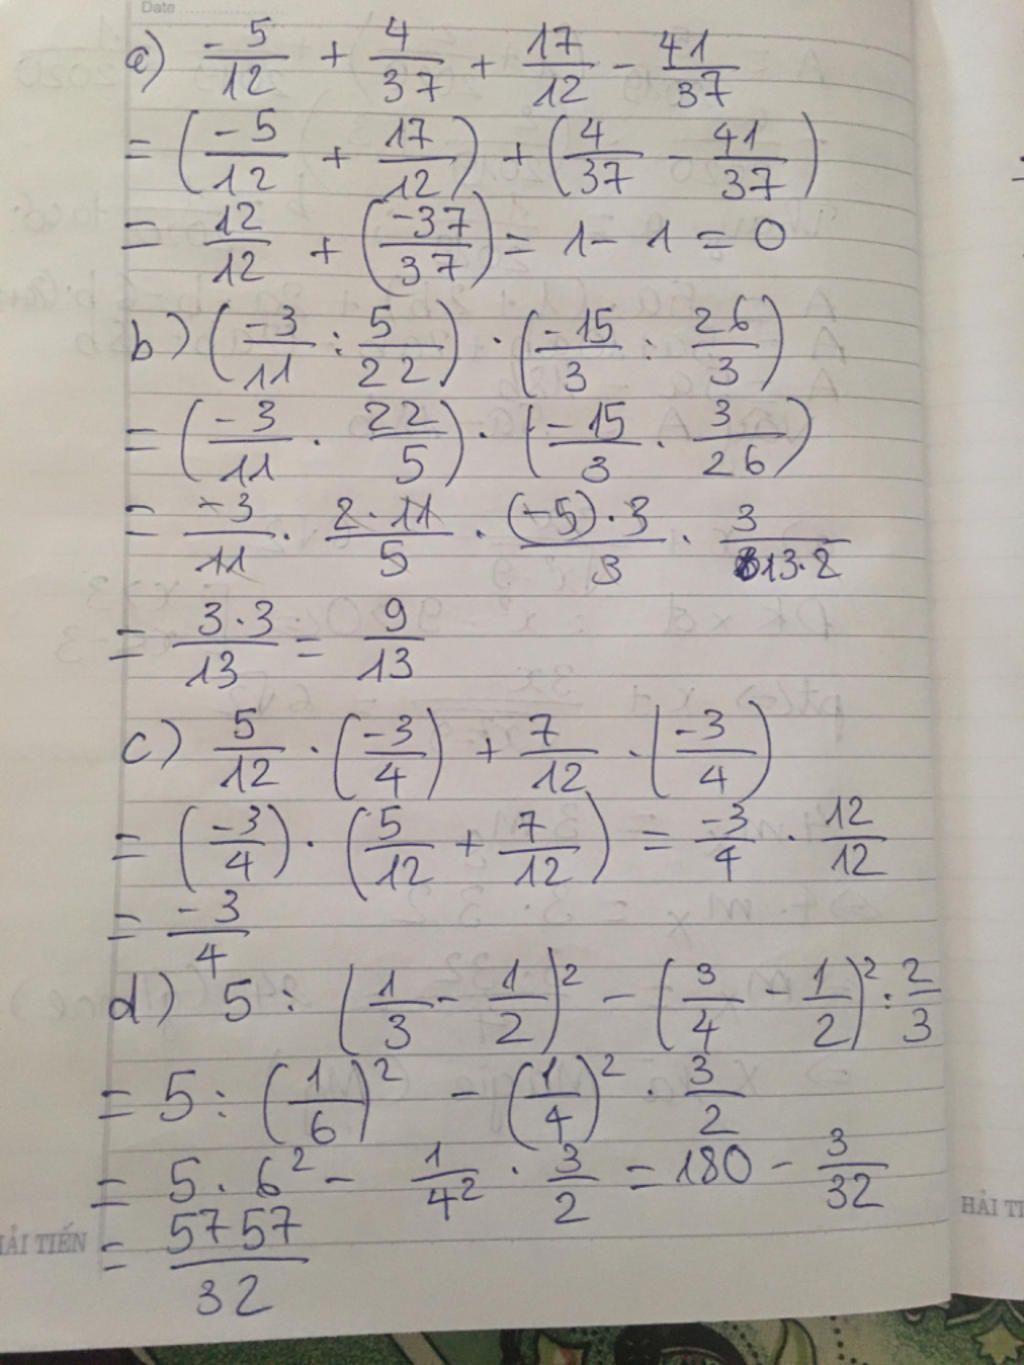 Date
a) -5/12 + 4/37 + 17/12 - 41/37
= (-5/12 + 17/12) + (4/37 - 41/37)
= 12/12 + (-37/37) = 1 - 1 = 0
b) (-3/11 : 5/22) · (-15/3 : 26/3)
= (-3/11 · 22/5) · (-15/3 · 3/26)
= -3/11 · 2·11/5 · (-5)·3/3 · 3/13·2
= 3·3/13 = 9/13
c) 5/12 · (-3/4) + 7/12 · (-3/4)
= (-3/4) · (5/12 + 7/12) = -3/4 · 12/12
= -3/4
d) 5 : (1/3 - 1/2)² - (3/4 - 1/2)² : 2/3
= 5 : (1/6)² - (1/4)² · 3/2
= 5 · 6² - 1/4² · 3/2 = 180 - 3/32
= 5757/32
ẢI TIẾN
HẢI TI